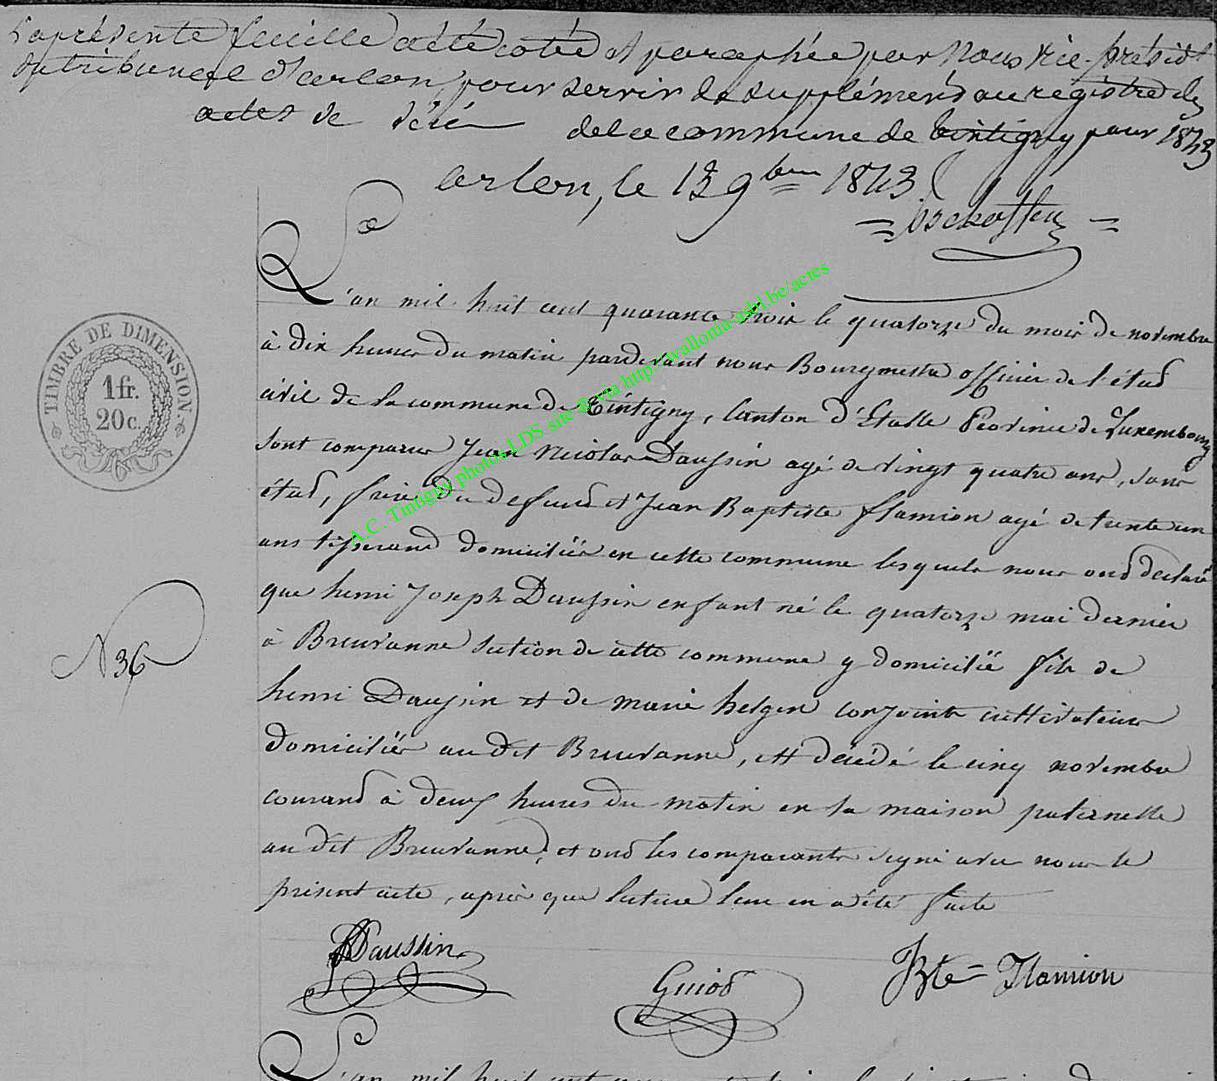 La présente feuille a été cotée et paraphée par Nous vice-présidt
du tribunal d'arlon, pour servir de supplément au registre des
actes de décès de la commune de tintigny pour 1843
arlon, le 13 9bre 1843
L'an mil huit cent quarante trois le quatorze du mois de novembre
à dix heures du matin pardevant nous Bourgmestre officier de l'état
civil de la commune de Tintigny, Canton d'Etalle Province de Luxembourg
sont comparus Jean Nicolas Daussin agé de vingt quatre ans, sans
état, frère du defunt et Jean Baptiste flamion agé de trente un
ans tisserand domiciliés en cette commune lesquels nous ont declaré
que henri Joseph Daussin enfant né le quatorze mai dernier
à Breuvanne section de cette commune y domicilié fils de
henri Daussin et de marie helgen conjoints cultivateurs
domiciliés au dit Breuvanne, est décédé le cinq novembre
courant à deux heures du matin en la maison paternelle
au dit Breuvanne, et ont les comparants signé avec nous le
présent acte, après que lecture leur en a été faite
Daussin
Guiot
JBte Flamion
L'an mil huit cent
N 36
TIMBRE DE DIMENSION.
1 fr.
20 c.
A.C. Tintigny photos LDS site & via http://wallonia-asbl.be/actes